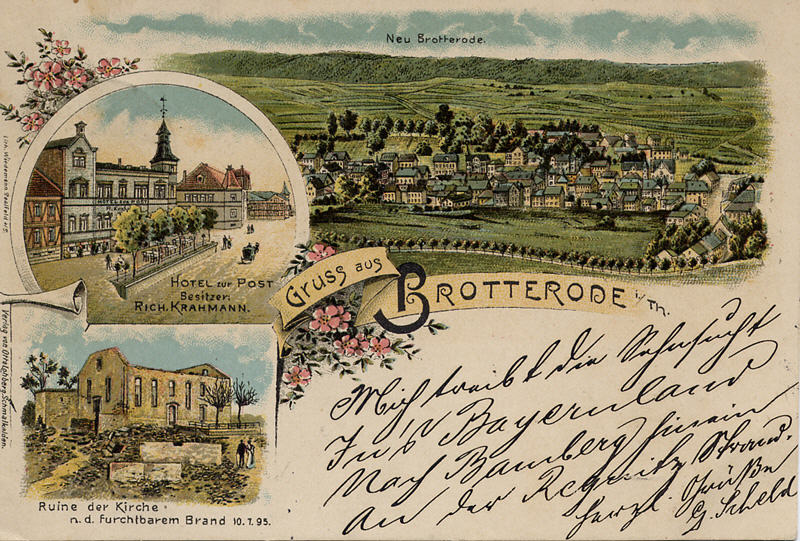 Neu Brotterode.
HOTEL ZUR POST
HOTEL ZUR POST
Besitzer:
RICH. KRAHMANN.
Gruss aus
BROTTERODE i/Th.
Mich treibt die Sehnsucht
In's Bayernland
Nach Bamberg hinein
An der Regnitz Strand.
herzl. Grüße
G. Scheld
Ruine der Kirche
n. d. furchtbarem Brand 10.7.95.
Lith. Wiedemann Saalfeld a/S.
Verlag von Otto Lohberg, Schmalkalden.